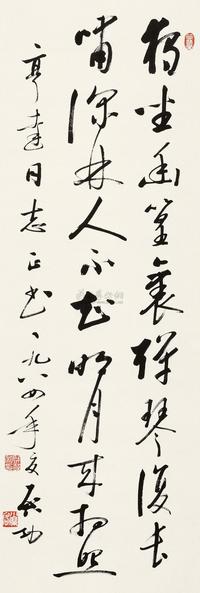 独坐幽篁裏弹琴復长
嘯深林人不知明月来相照
亨達同志正书 一九八四年夏 启功